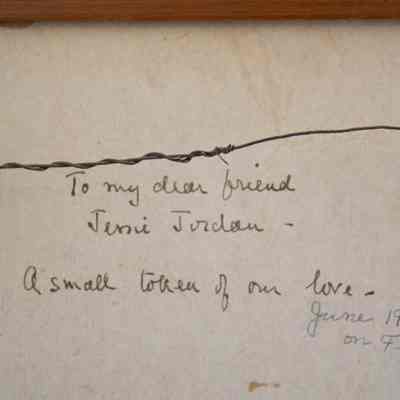 To my dear friend
Jessie Jordan -
A small token of our love -
June 19
on F